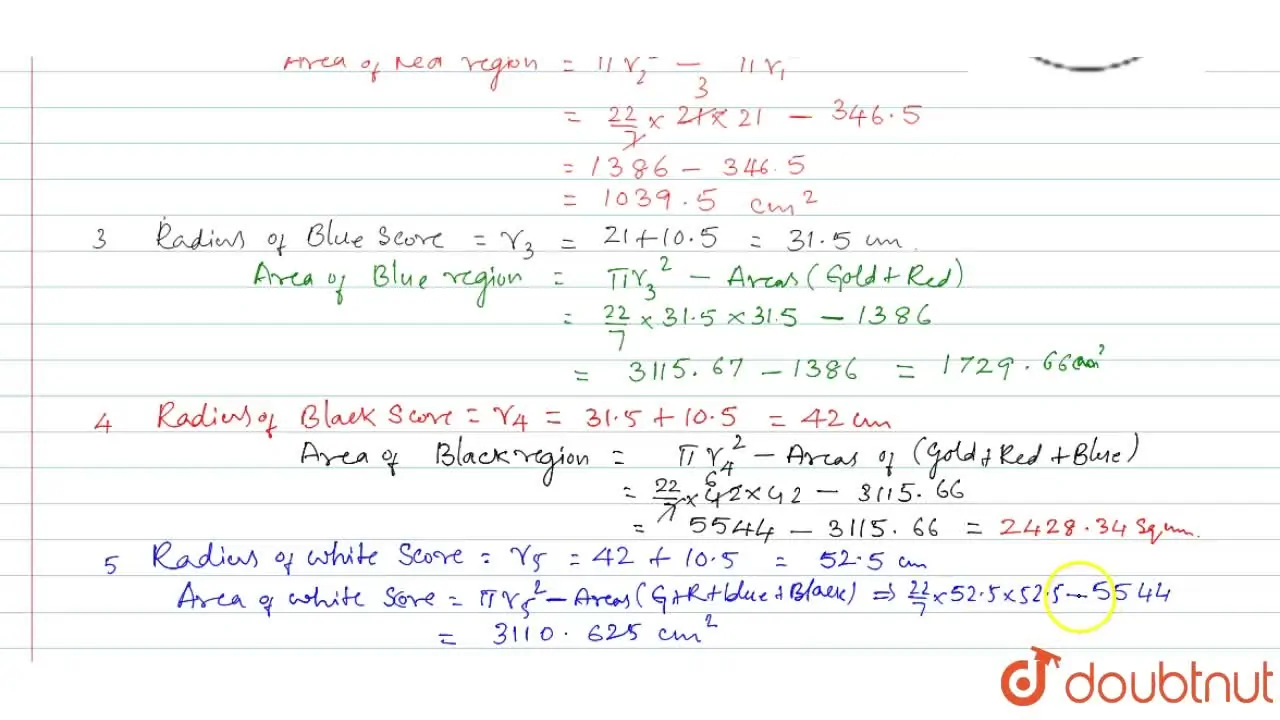 Area of Red region = πr₂² − πr₁²
3
= 22/7 × 21 × 21 − 346.5
= 1386 − 346.5
= 1039.5 cm²
3 Radius of Blue Score = r₃ = 21+10.5 = 31.5 cm.
Area of Blue region = πr₃² − Areas (Gold+Red)
= 22/7 × 31.5 × 31.5 − 1386
= 3115.67 − 1386 = 1729.66 cm²
4 Radius of Black Score = r₄ = 31.5 + 10.5 = 42 cm
Area of Black region = πr₄² − Areas of (Gold+Red+Blue)
6
= 22/7 × 42 × 42 − 3115.66
= 5544 − 3115.66 = 2428.34 Sq.cm.
5 Radius of white Score = r₅ = 42 + 10.5 = 52.5 cm
Area of white Score = πr₅² − Areas (G+R+blue+Black) ⇒ 22/7 × 52.5 × 52.5 − 5544
= 3110.625 cm²
doubtnut